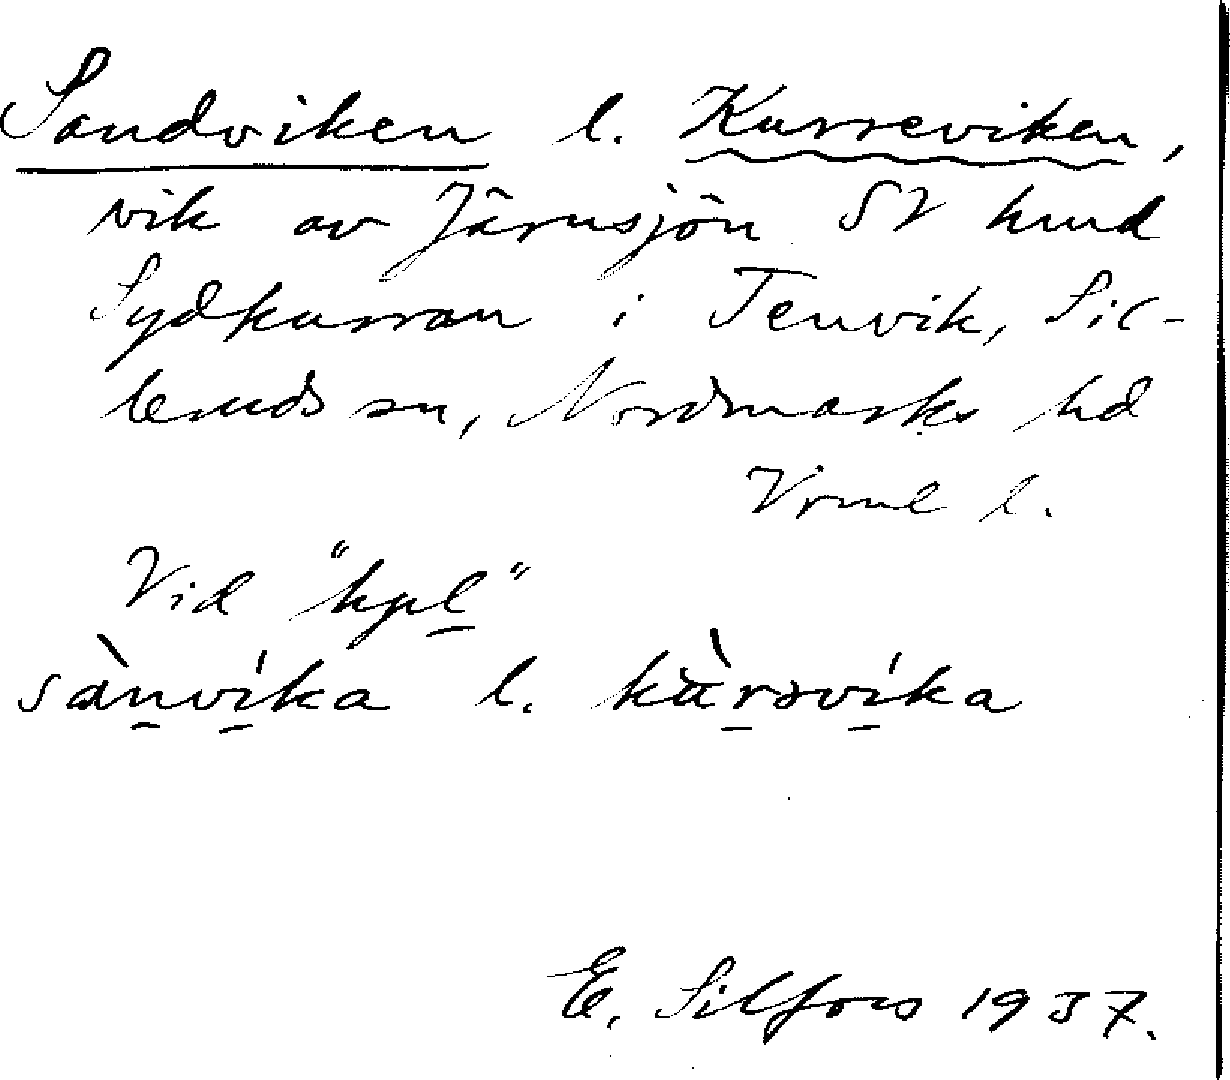 Sandviken l. Kurreviken,
vik av Järnsjön SV hmd
Sydkurran i Tenvik, Sil-
leruds sn, Nordmarks hd
Vrml l.
Vid "hpl"
sànvíka l. kùrrvíka
E. Silfors 1937.